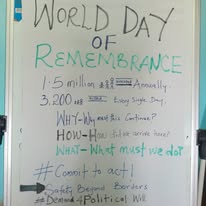 WORLD DAY
OF
REMEMBRANCE
1.5 million Annually.
3,200 Every Single Day.
WHY-Why must this Continue?
HOW-How did we arrive here?
WHAT-What must we do?
#Commit to act!
Safety Beyond Borders
#Demand 4 Political Will